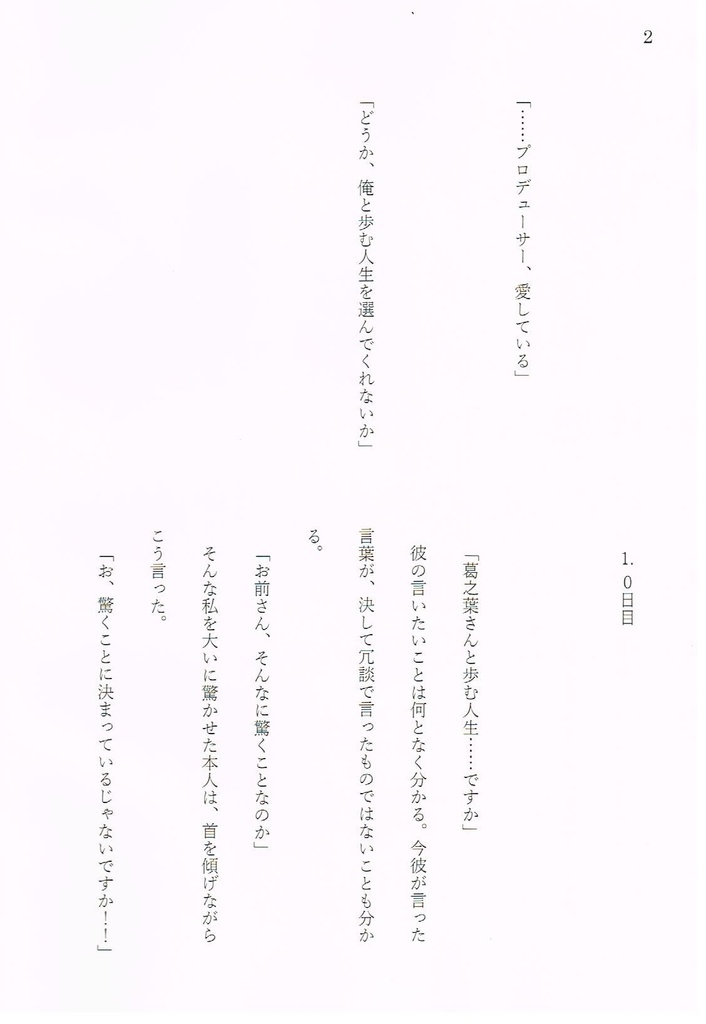 2
「……プロデューサー、愛している」
「どうか、俺と歩む人生を選んでくれないか」
1. 0日目
「葛之葉さんと歩む人生……ですか」
彼の言いたいことは何となく分かる。今彼が言った
言葉が、決して冗談で言ったものではないことも分か
る。
「お前さん、そんなに驚くことなのか」
そんな私を大いに驚かせた本人は、首を傾げながら
こう言った。
「お、驚くことに決まっているじゃないですか！！」